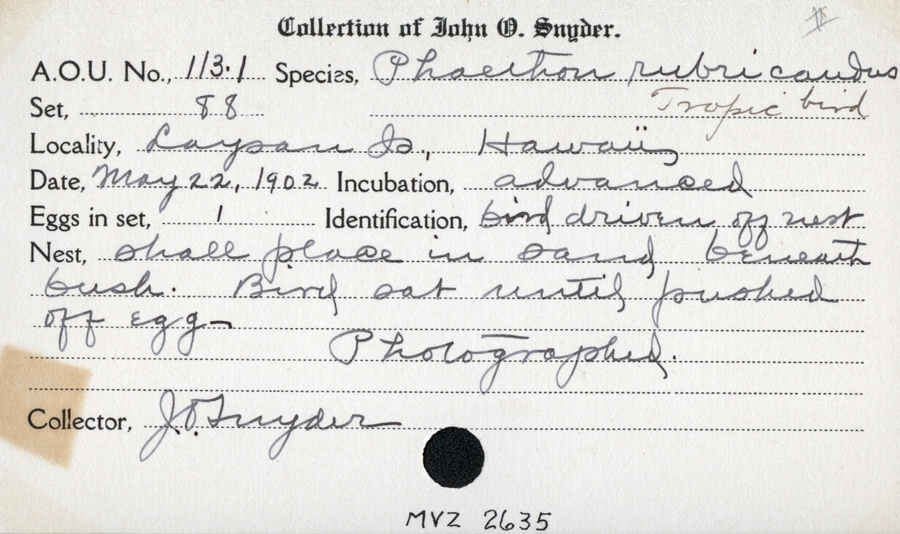 Collection of John O. Snyder.
A.O.U. No., 113.1 Species, Phaethon rubricaudus
Set, 88 Tropic bird
Locality, Laysan Is., Hawaii,
Date, May 22, 1902 Incubation, advanced
Eggs in set, 1 Identification, bird driven off nest
Nest, shall place in sand beneath
bush. Bird sat until pushed
off egg—
Photographed.
Collector, J.O. Snyder
MVZ 2635